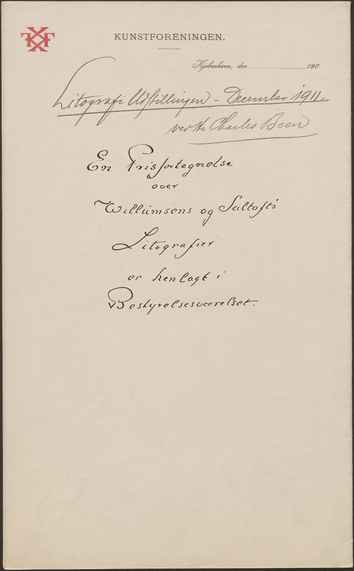 KUNSTFORENINGEN.
Kjøbenhavn, den 190
Litografi Udstillingen - December 1911.
ved Hr. Charles Been
En Prisfortegnelse
over
Willumsens og Saltoft's
Litografier
er henlagt i
Bestyrelsesværelset.